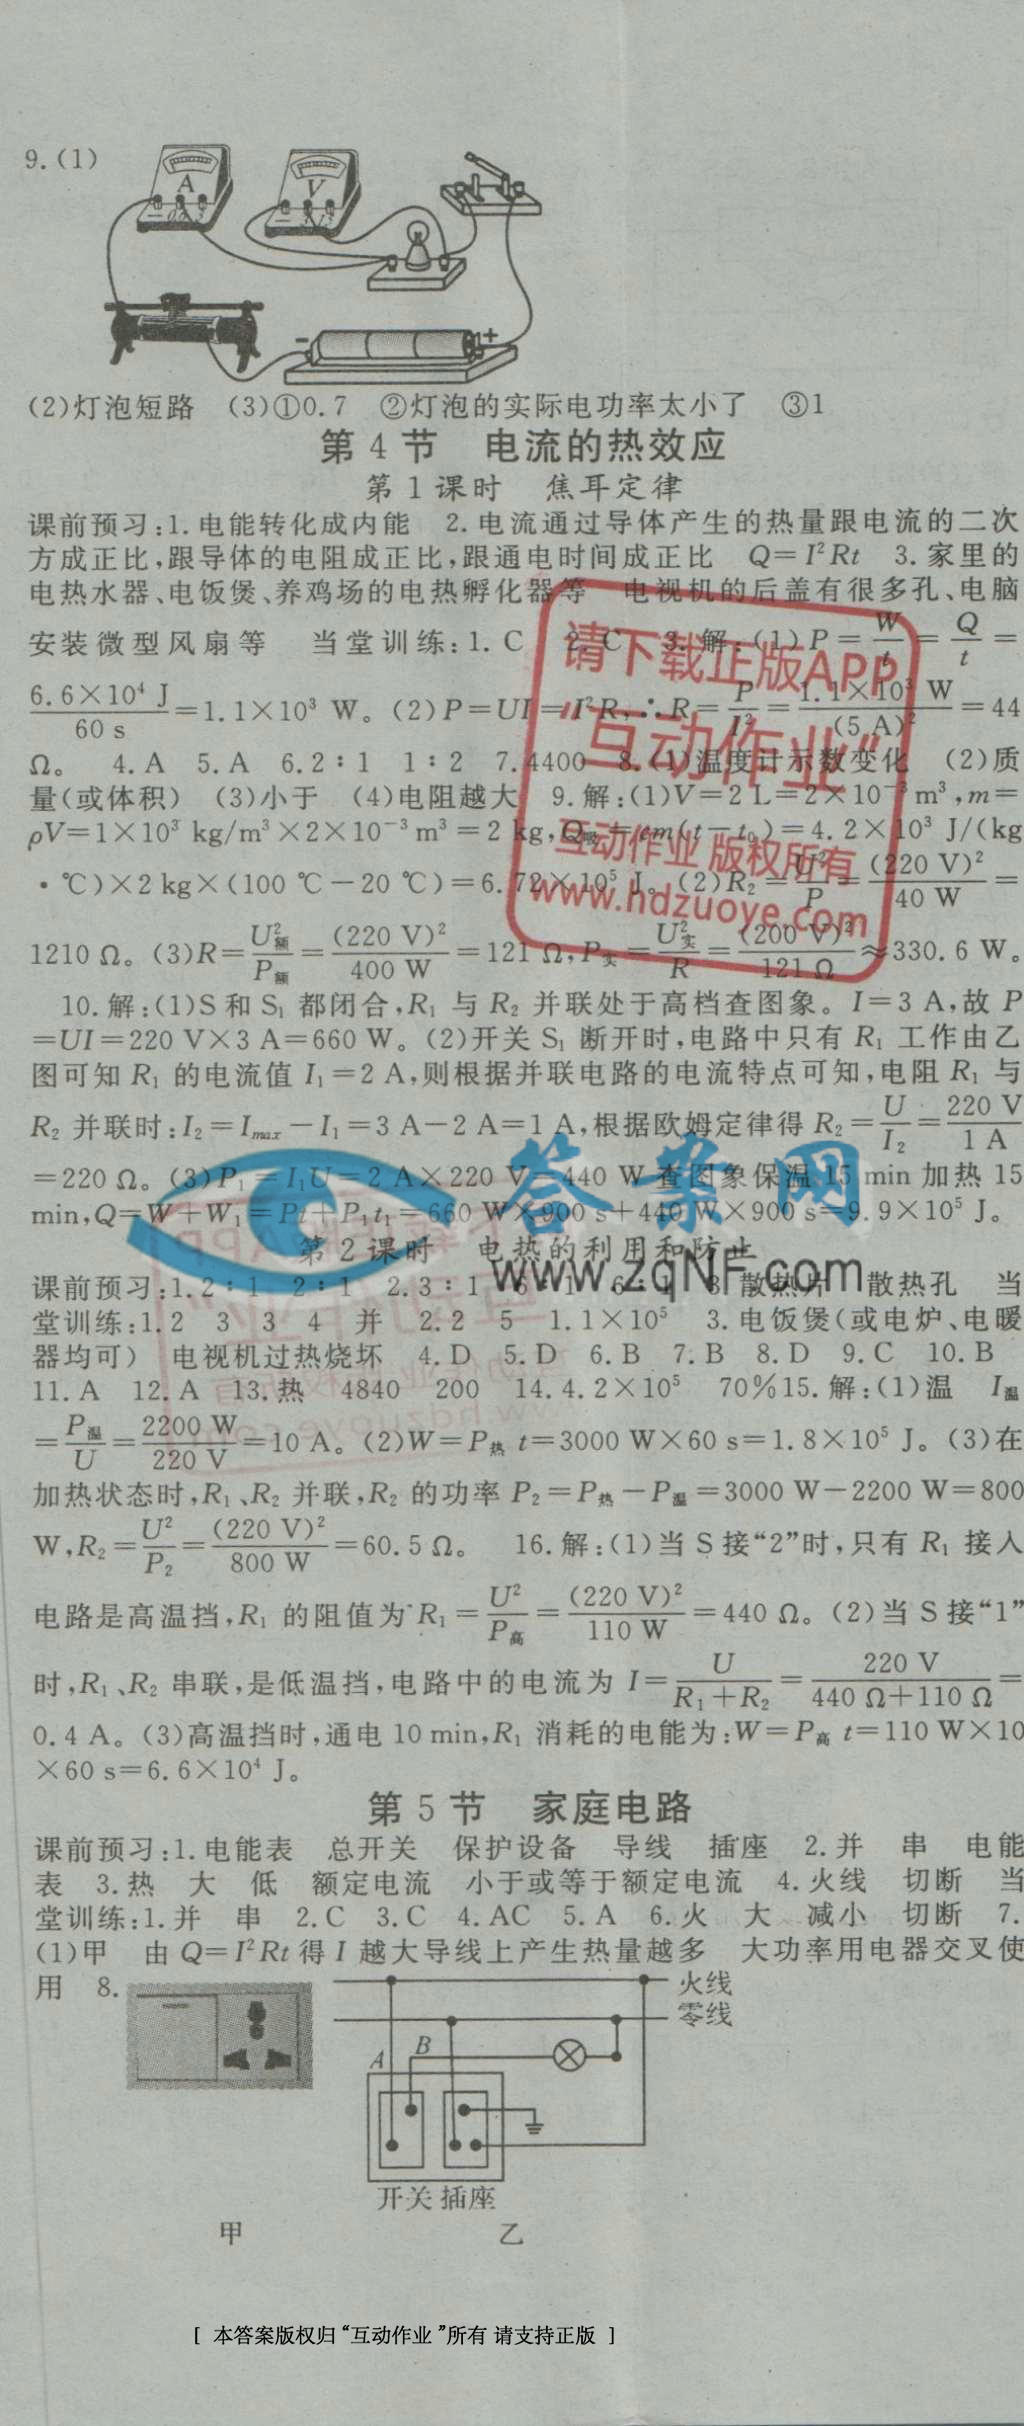 9.(1)
A V
- +
(2)灯泡短路 (3)①0.7 ②灯泡的实际电功率太小了 ③1
第4节 电流的热效应
第1课时 焦耳定律
课前预习:1.电能转化成内能 2.电流通过导体产生的热量跟电流的二次
方成正比,跟导体的电阻成正比,跟通电时间成正比 Q=I²Rt 3.家里的
电热水器、电饭煲、养鸡场的电热孵化器等 电视机的后盖有很多孔、电脑
安装微型风扇等 当堂训练:1.C 2.C 3.解:(1)P=W/t=Q/t=
6.6×10⁴ J/60 s=1.1×10³ W。(2)P=UI=I²R,∴R=P/I²=1.1×10³ W/(5 A)²=44
Ω。 4.A 5.A 6.2∶1 1∶2 7.4400 8.(1)温度计示数变化 (2)质
量(或体积) (3)小于 (4)电阻越大 9.解:(1)V=2 L=2×10⁻³m³,m=
ρV=1×10³ kg/m³×2×10⁻³m³=2 kg,Q吸=cm(t-t₀)=4.2×10³ J/(kg
·℃)×2 kg×(100 ℃-20 ℃)=6.72×10⁵ J。(2)R₂=U²/P=(220 V)²/40 W=
1210 Ω。(3)R=U²额/P额=(220 V)²/400 W=121 Ω,P实=U²实/R=(200 V)²/121 Ω≈330.6 W。
10.解:(1)S和S₁都闭合,R₁与R₂并联处于高档查图象。I=3 A,故P
=UI=220 V×3 A=660 W。(2)开关S₁断开时,电路中只有R₁工作由乙
图可知R₁的电流值I₁=2 A,则根据并联电路的电流特点可知,电阻R₁与
R₂并联时:I₂=Imax-I₁=3 A-2 A=1 A,根据欧姆定律得R₂=U/I₂=220 V/1 A
=220 Ω。(3)P₁=I₁U=2 A×220 V=440 W查图象保温15 min加热15
min,Q=W+W₁=Pt+P₁t₁=660 W×900 s+440 W×900 s=9.9×10⁵ J。
第2课时 电热的利用和防止
课前预习:1.2∶1 2∶1 2.3∶1 6∶1 6∶1 3.散热片 散热孔 当
堂训练:1.2 3 3 4 并 2.2 5 1.1×10⁵ 3.电饭煲(或电炉、电暖
器均可) 电视机过热烧坏 4.D 5.D 6.B 7.B 8.D 9.C 10.B
11.A 12.A 13.热 4840 200 14.4.2×10⁵ 70%15.解:(1)温 I温
=P温/U=2200 W/220 V=10 A。(2)W=P热 t=3000 W×60 s=1.8×10⁵ J。(3)在
加热状态时,R₁、R₂并联,R₂的功率P₂=P热-P温=3000 W-2200 W=800
W,R₂=U²/P₂=(220 V)²/800 W=60.5 Ω。 16.解:(1)当S接“2”时,只有R₁接入
电路是高温挡,R₁的阻值为R₁=U²/P高=(220 V)²/110 W=440 Ω。(2)当S接“1”
时,R₁、R₂串联,是低温挡,电路中的电流为I=U/(R₁+R₂)=220 V/(440 Ω+110 Ω)=
0.4 A。(3)高温挡时,通电10 min,R₁消耗的电能为:W=P高 t=110 W×10
×60 s=6.6×10⁴ J。
第5节 家庭电路
课前预习:1.电能表 总开关 保护设备 导线 插座 2.并 串 电能
表 3.热 大 低 额定电流 小于或等于额定电流 4.火线 切断 当
堂训练:1.并 串 2.C 3.C 4.AC 5.A 6.火 大 减小 切断 7.
(1)甲 由Q=I²Rt得I越大导线上产生热量越多 大功率用电器交叉使
用 8.
火线
零线
A B
开关 插座
甲 乙
请下载正版APP
“互动作业”
互动作业 版权所有
www.hdzuoye.com
答案网
www.zqNF.com
[ 本答案版权归“互动作业”所有 请支持正版 ]